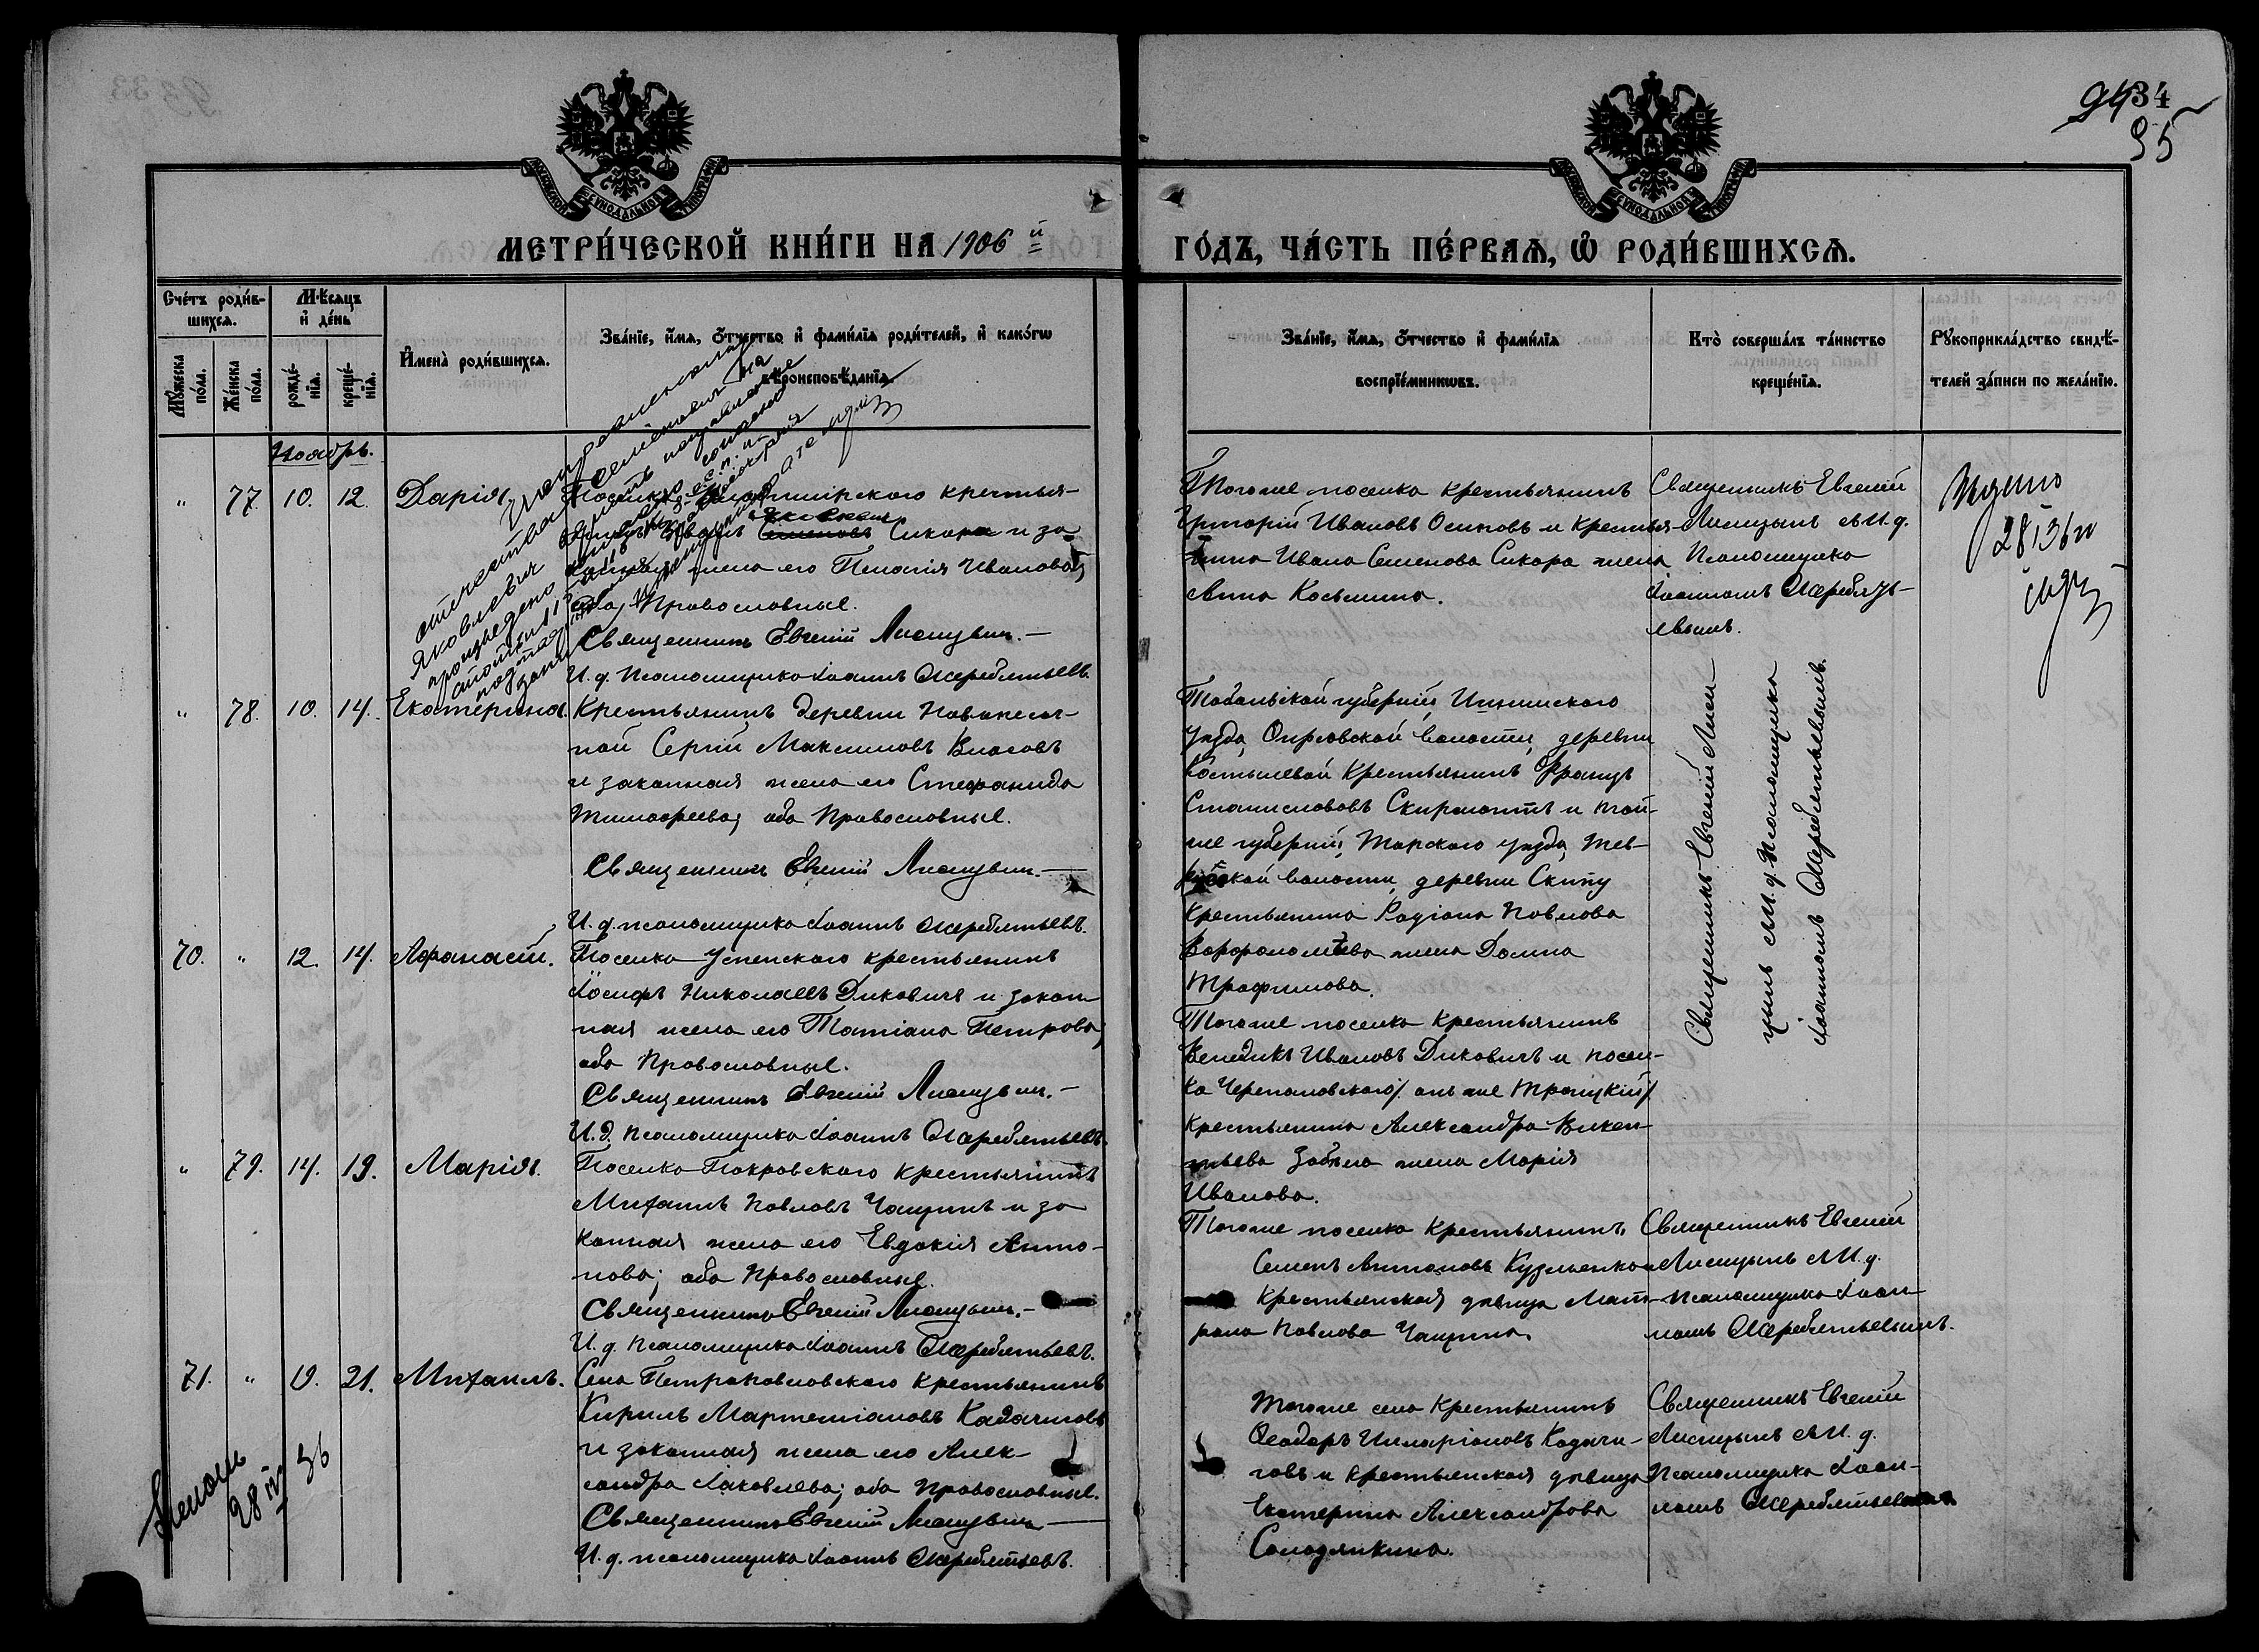 9434
95
МЕТРИ́ЧЕСКОЙ КНИ́ГИ НА 1906 й
ГО́ДЪ, ЧА́СТЬ ПЕ́РВАѦ, Ѽ РОДИ́ВШИХСѦ.
Сче́тъ роди́в-
шихсѧ.
Мꙋ́жеска по́ла.
Же́нска по́ла.
Мѣ́сѧцъ
и҆ де́нь
рожде́-
нїѧ.
креще́-
нїѧ.
И҆мена̀ роди́вшихсѧ.
Зва́нїе, и҆́мѧ, ѻ҆́тчество и҆ фами́лїѧ роди́телей, и҆ како́гѡ
вѣроисповѣ́данїѧ.
Зва́нїе, и҆́мѧ, ѻ҆́тчество и҆ фами́лїѧ
воспрїе́мникѡвъ.
Кто̀ соверша́лъ та́инство
креще́нїѧ.
Рꙋкоприкла́дство свидѣ́-
телей за́писи по жела́нїю.
Ноябрь.
" 77. 10. 12. Дарія
Поселка Владимірского крестья-
Иванъ Семеновъ Сикора и за
конная жена его Пелагія Иванова,
оба Православные.
Священникъ Евгеній Лисицынъ.
И. д. псаломщика Іоаннъ Жеребятьевъ.
Тогоже поселка крестьянинъ
Григорій Ивановъ Осиповъ и крестья-
нина Ивана Семенова Сикора жена
Анна Косьмина.
Священникъ Евгеній
Лисицынъ с И. д.
Псаломщика
Іоанномъ Жеребять-
евымъ.
" 78. 10. 14. Екатерина.
Крестьянинъ деревни Новопесча-
ной Сергій Максимовъ Власовъ
и законная жена его Стефанида
Тимофеева; оба Православные.
Священникъ Евгеній Лисицынъ.
И. д. псаломщика Іоаннъ Жеребятьевъ.
Тобольской губерніи, Ишимского
уѣзда, волости, деревни
крестьянинъ Францъ
Станиславовъ и той-
же губерніи, Тарского уѣзда, Тев-
ризской волости, деревни Скиту
крестьянина Радіона Павлова
Варфоломѣева жена Домна
Трофимова.
Священникъ Евгеній Лиси-
цынъ с И. д. Псаломщика
Іоанномъ Жеребятьевымъ.
70. " 12. 14. Афанасій.
Поселка Успенского крестьянинъ
Іосифъ Николаевъ Диковичъ и закон-
ная жена его Татіана Петрова;
оба Православные.
Священникъ Евгеній Лисицынъ.
И. д. Псаломщика Іоаннъ Жеребятьевъ.
Тогоже поселка крестьянинъ
Венедикъ Ивановъ Диковичъ и посел-
ка Череполовского / онъ же Троицкій /
крестьянина Александра Викен-
тьева жена Марія
Иванова.
" 79. 14. 19. Марія.
Поселка Покровского крестьянинъ
Михаилъ Павловъ Чащинъ и за
конная жена его Евдокія Анто-
нова; оба Православные.
Священникъ Евгеній Лисицынъ.
И. д. Псаломщика Іоаннъ Жеребятьевъ.
Тогоже поселка крестьянинъ
Семенъ Антоновъ Кузьменко и
крестьянская дѣвица Мат-
рона Павлова Чащина.
Священникъ Евгеній
Лисицынъ с И. д.
Псаломщика Іоан-
номъ Жеребятьевымъ.
71. " 19. 21. Михаилъ.
Села Петропавловского крестьянинъ
Кирилъ Мартеміановъ Кадачиговъ
и законная жена его Алек-
сандра Іаковлева; оба Православные.
Священникъ Евгеній Лисицынъ
И. д. псаломщика Іоаннъ Жеребятьевъ.
Тогоже села крестьянинъ
Ѳеодоръ Иларіоновъ Кадачи-
говъ и крестьянская дѣвица
Екатерина Александрова
Солодянкина.
Священникъ Евгеній
Лисицынъ с И. д.
Псаломщика Іоан-
номъ Жеребятьевымъ
28 IV 36